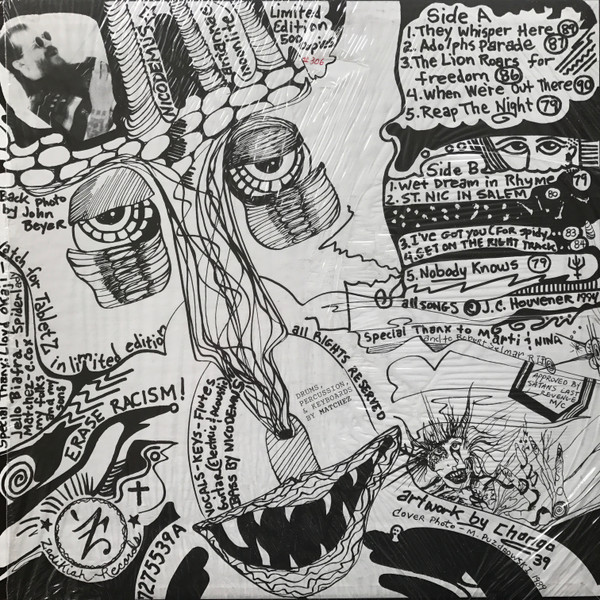 Limited
Edition
500
copies
#306
NICODEMUS
Back Photo
by John
Beyer
Side A
1. They Whisper Here 89
2. Adolphs Parade 87
3. The Lion Roars for
freedom 86
4. When We're Out There 90
5. Reap The Night 79
Side B
1. Wet Dream in Rhyme 79
2. ST. NIC IN SALEM 80
3. I'VE GOT YOU (For Spidy) 83
4. GET ON THE RIGHT TRACK 84
5. Nobody Knows 79
all SONGS © J.C. Houvener 1994
Special Thanx to Marti & NINA
APPROVED BY
SATANS LAST
REVENUE
M/C
limited edition
all RIGHTS RESERVED
Special Thanx: Lloyd
Jello Biafra - Spiderleg
ERASE RACISM!
VOCALS - KEYS - Flutes
guitar (Electric & Acoustic)
BASS BY NICODEMUS
DRUMS,
PERCUSSION,
& KEYBOARDS
BY MATCHEZ
Z
Zodikiah Records
7275539A
artwork by Chariga
Cover Photo - M.
39